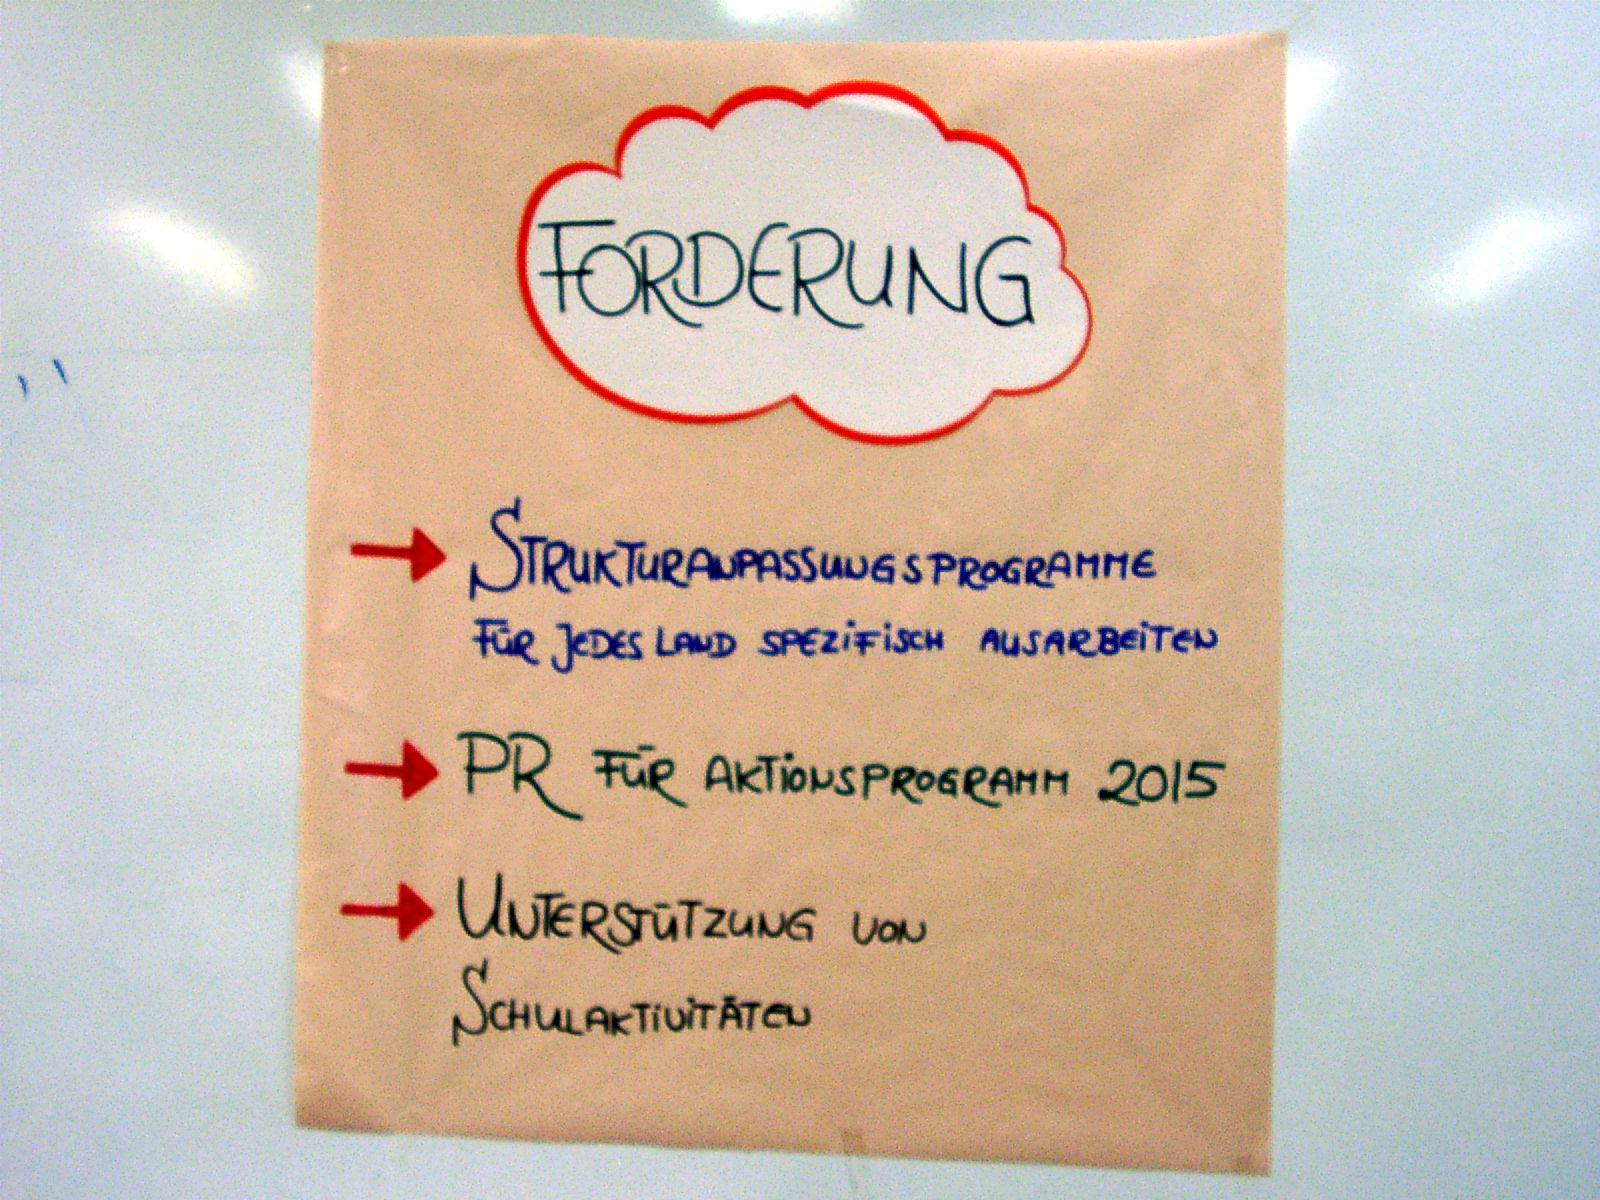 FORDERUNG
STRUKTURANPASSUNGSPROGRAMME
FÜR JEDES LAND SPEZIFISCH AUSARBEITEN
PR FÜR AKTIONSPROGRAMM 2015
UNTERSTÜTZUNG VON
SCHULAKTIVITÄTEN